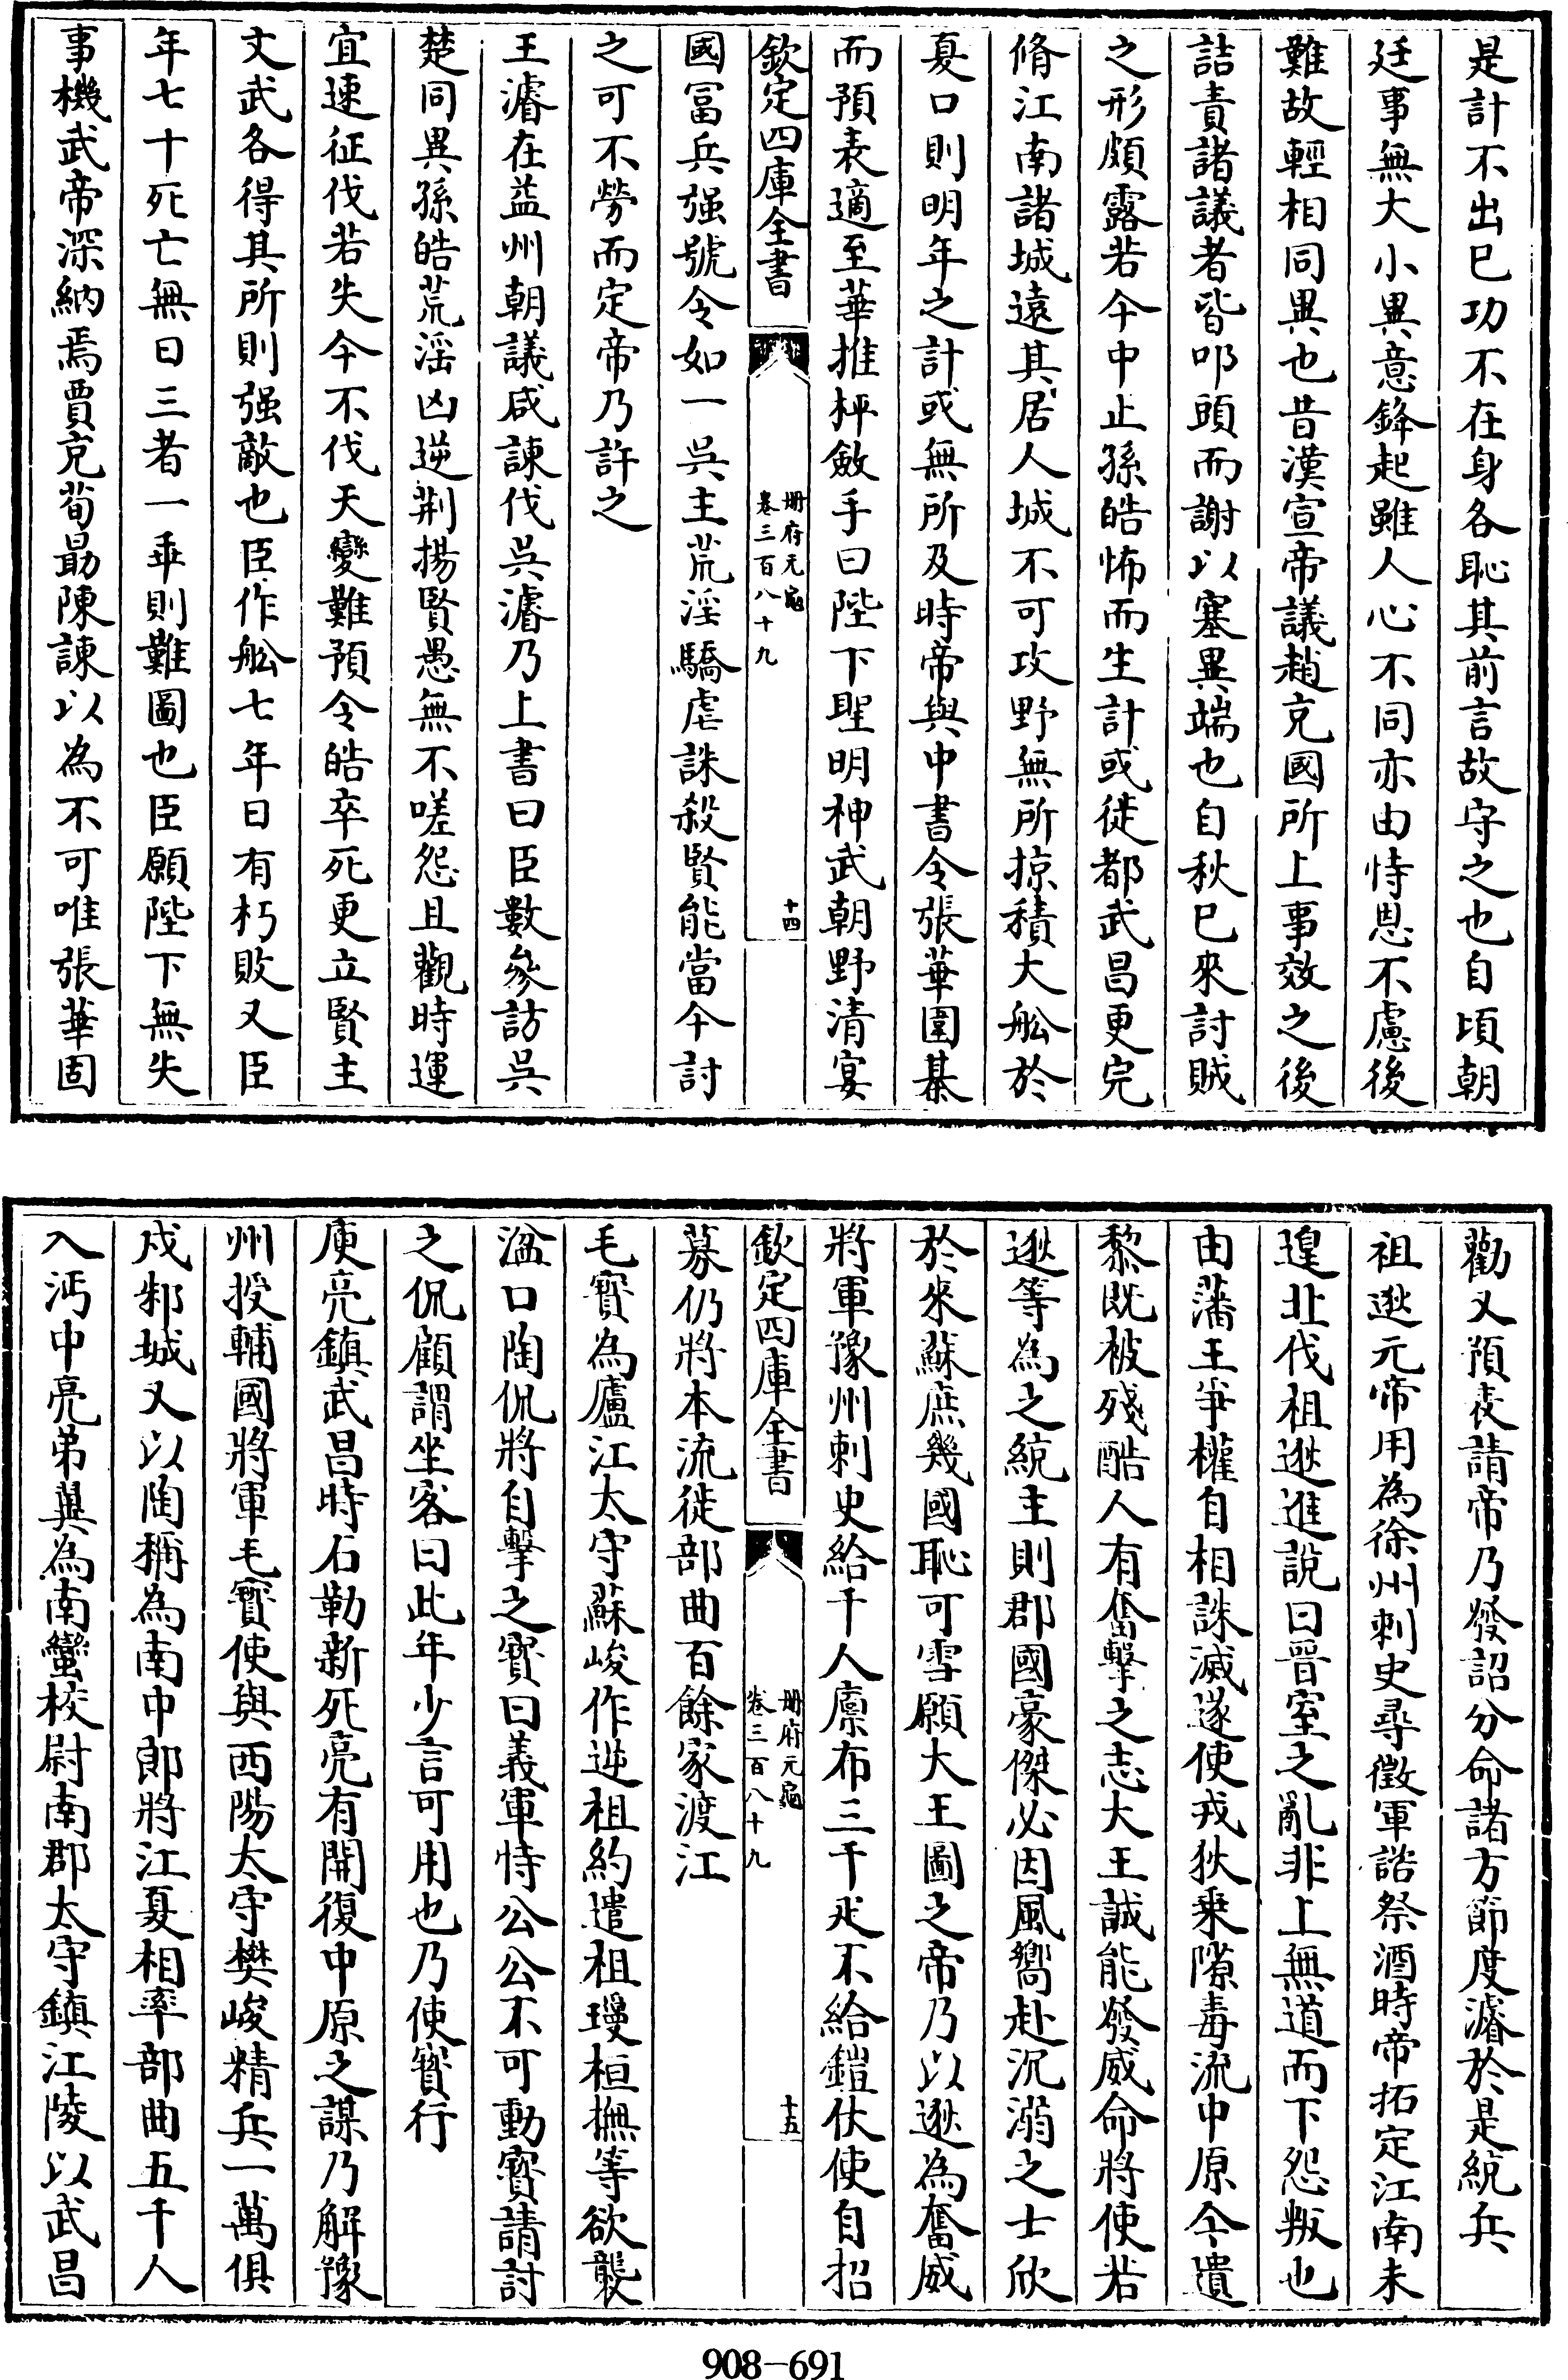 是計不出已功不在身各恥其前言故守之也自頃朝
廷事無大小異意鋒起雖人心不同亦由恃恩不慮後
難故輕相同異也昔漢宣帝議趙充國所上事效之後
詰責諸議者皆叩頭而謝以塞異端也自秋已來討賊
之形頗露若今中止孫皓怖而生計或徙都武昌更完
脩江南諸城遠其居人城不可攻野無所掠積大船於
夏口則明年之計或無所及時帝與中書令張華圍棊
而預表適至華推枰斂手曰陛下聖明神武朝野清宴
欽定四庫全書
冊府元龜
卷三百八十九
十四
國冨兵强號令如一吳主荒淫驕虐誅殺賢能當今討
之可不勞而定帝乃許之
王濬在益州朝議咸諫伐吳濬乃上書曰臣數參訪吳
楚同異孫皓荒淫凶逆荆揚賢愚無不嗟怨且觀時運
宜速征伐若失今不伐天變難預令皓卒死更立賢主
文武各得其所則强敵也臣作船七年日有朽敗又臣
年七十死亡無日三者一乖則難圖也臣願陛下無失
事機武帝深納焉賈充荀勖陳諫以為不可唯張華固
勸又預表請帝乃發詔分命諸方節度濬於是統兵
祖逖元帝用為徐州刺史尋徵軍諮祭酒時帝拓定江南未
遑北伐祖逖進說曰晉室之亂非上無道而下怨叛也
由藩王爭權自相誅滅遂使戎狄乗隙毒流中原今遺
黎既被殘酷人有奮擊之志大王誠能發威命將使若
逖等為之統主則郡國豪傑必因風嚮赴沉溺之士欣
於來蘇庶幾國恥可雪願大王圖之帝乃以逖為奮威
將軍豫州刺史給千人廪布三千疋不給鎧仗使自招
欽定四庫全書
冊府元龜
卷三百八十九
十五
募仍將本流徙部曲百餘家渡江
毛寳為廬江太守蘇峻作逆祖約遣祖𤩁桓撫等欲襲
湓口陶侃將自擊之寳曰義軍恃公公不可動寳請討
之侃顧謂坐客曰此年少言可用也乃使寳行
庾亮鎮武昌時石勒新死亮有開復中原之謀乃解豫
州授輔國將軍毛寳使與西陽太守樊峻精兵一萬俱
戍邾城又以陶稱為南中郎將江夏相率部曲五千人
入沔中亮弟翼為南蠻校尉南郡太守鎮江陵以武昌
908-691